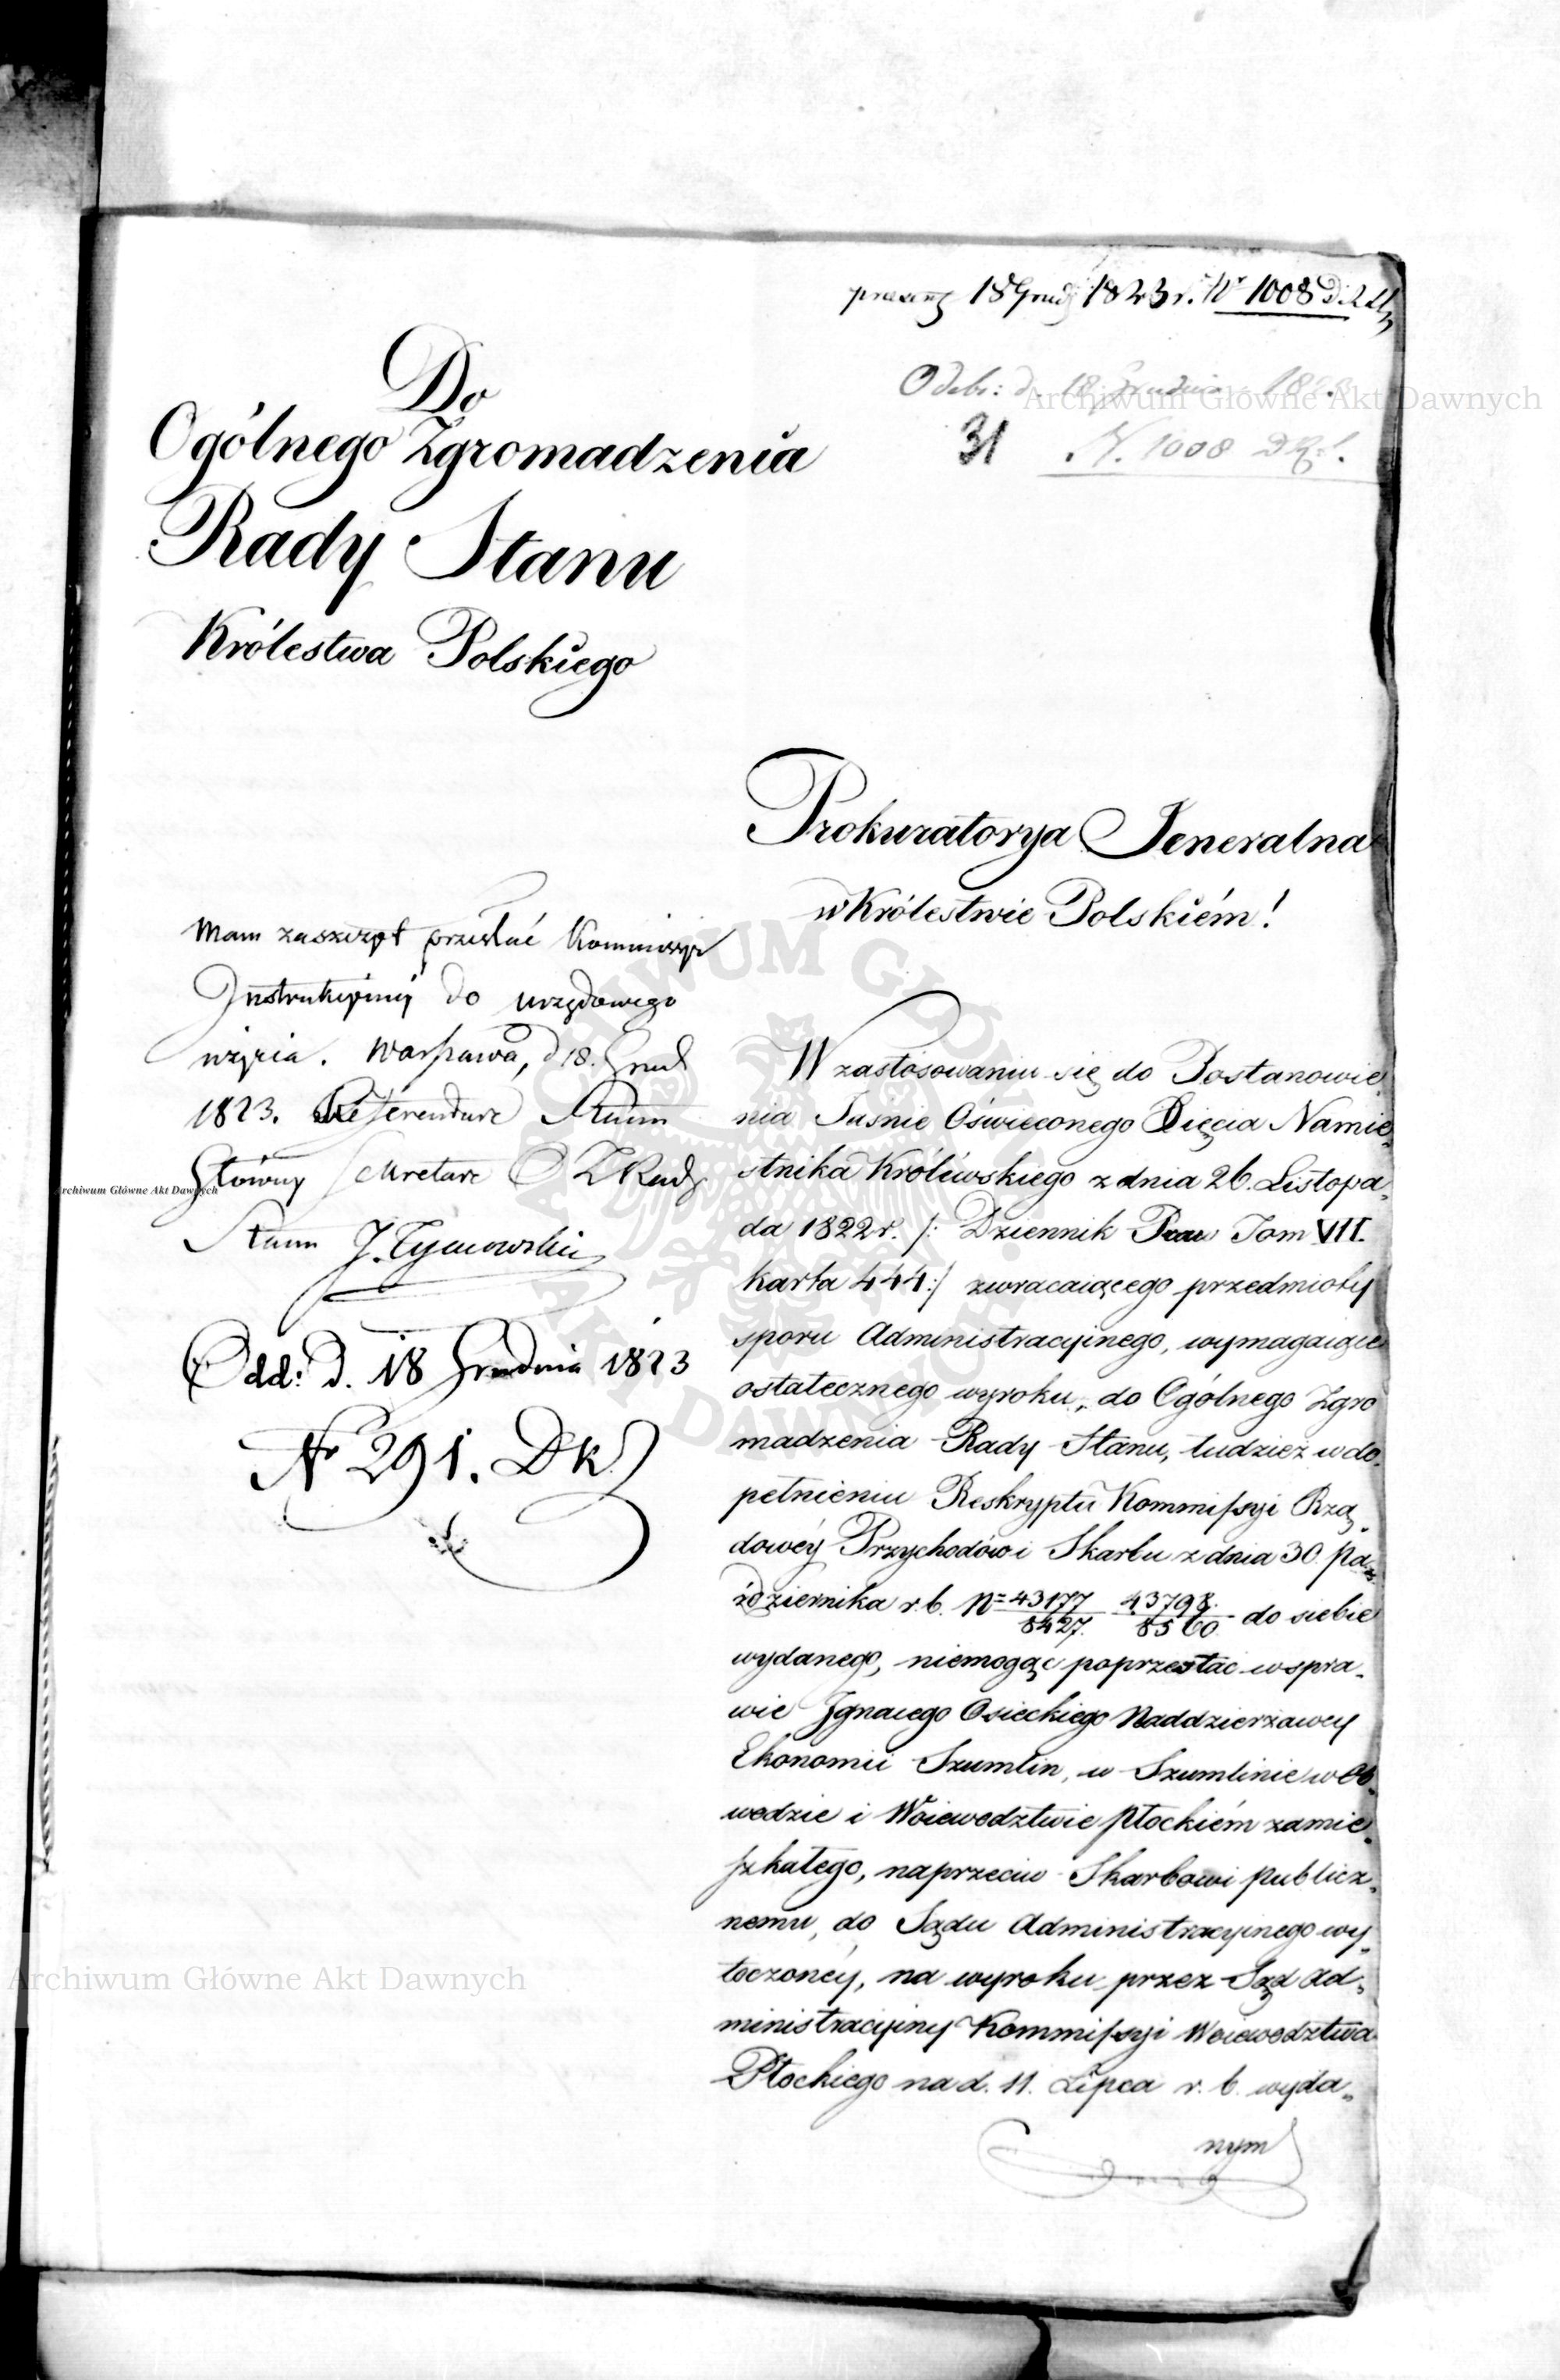 18 Grud 1823 r. Nr 1008
Odebr: d. 18 Grudnia
31 N. 1008
Archiwum Główne Akt Dawnych
Do
Ogólnego Zgromadzenia
Rady Stanu
Królestwa Polskiego
Prokuratorya Jeneralna
w Królestwie Polskiém!
Mam zaszczyt przesłać Kommissyi
Instrukcyiney do urzędowego
użycia. Warszawa, d 18. Grud
1823. Referendarz Stanu
Główny Sekretarz O Z Rady
Stanu J. Tymowski
Odd: d. 18 Grudnia 1823
Nr 291. DK.
W zastosowaniu się do Postanowie„
nia Jaśnie Oświeconego Xięcia Namie„
stnika Królewskiego z dnia 26. Listopa„
da 1822 r. /: Dziennik Praw Tom VII.
karta 444 :/ zwracaiącego przedmioty
sporu Administracyinego, wymagaiące
ostatecznego wyroku, do Ogólnego Zgro
madzenia Rady Stanu, tudzież w do„
pełnieniu Reskryptu Kommissyi Rzą„
dowéy Przychodów i Skarbu z dnia 30. Pa„
ździernika r. b. N= 43177/8427. 43798./8560 do siebie
wydanego, niemogąc poprzestać w spra„
wie Ignacego Osieckiego Naddzierżawcy
Ekonomii Szumlin, w Szumlinie w Ob„
wodzie i Woiewodztwie Płockiém zamie„
szkałego, naprzeciw Skarbowi publicz„
nemu, do Sądu Administracyinego wy„
toczonéy, na wyroku przez Sąd Ad„
ministracyiny Kommissyi Woiewodztwa
Płockiego na d. 11. Lipca r. b. wyda„
nym
Archiwum Główne Akt Dawnych
Archiwum Główne Akt Dawnych
ARCHIWUM GŁÓWNE AKT DAWNYCH